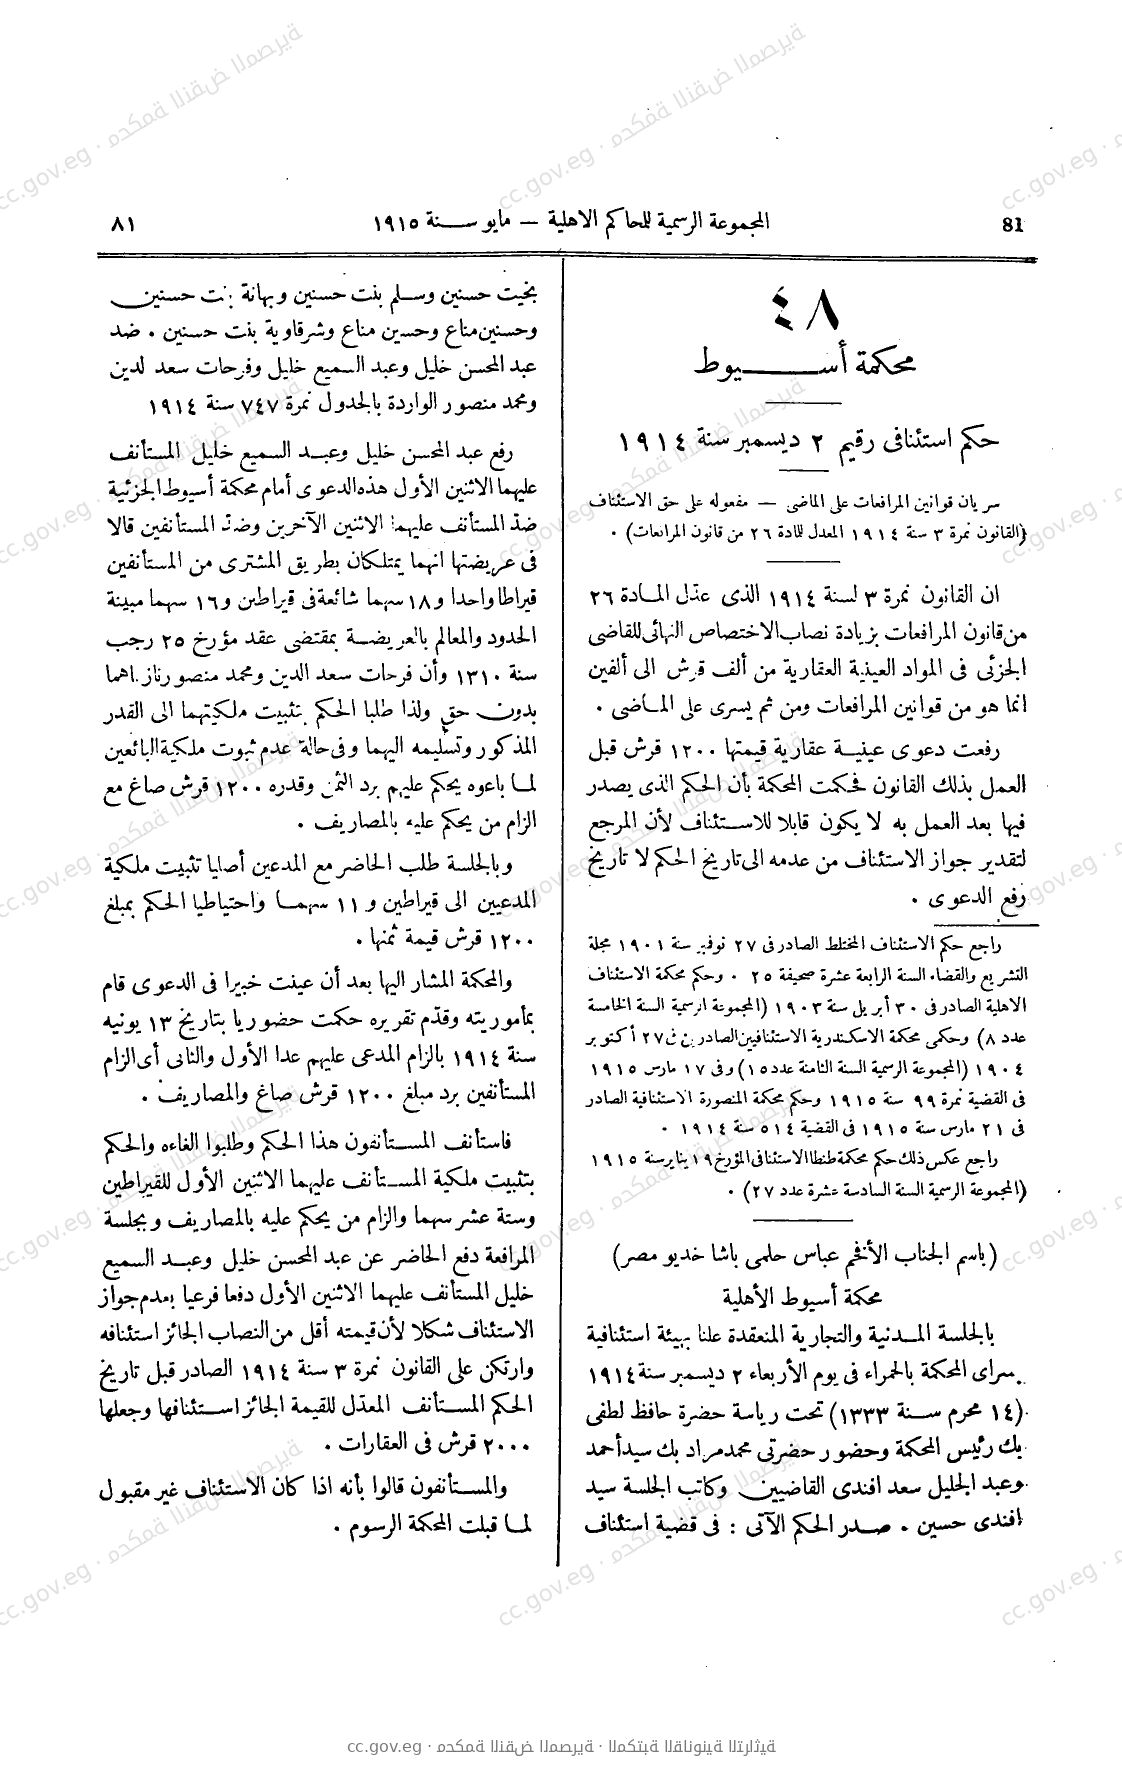 81
المجموعة الرسمية للمحاكم الاهلية — مايو سنة ١٩١٥
٨١
٤٨
محكمة أسيوط
حكم استئنافى رقيم ٢ ديسمبر سنة ١٩١٤
سريان قوانين المرافعات على الماضى — مفعوله على حق الاستئناف
(القانون نمرة ٣ سنة ١٩١٤ المعدل للمادة ٢٦ من قانون المرافعات) .
ان القانون نمرة ٣ لسنة ١٩١٤ الذى عدّل المادة ٢٦
من قانون المرافعات بزيادة نصاب الاختصاص النهائى للقاضى
الجزئى فى المواد العينية العقارية من ألف قرش الى ألفين
انما هو من قوانين المرافعات ومن ثم يسرى على الماضى .
رفعت دعوى عينية عقارية قيمتها ١٢٠٠ قرش قبل
العمل بذلك القانون فحكمت المحكمة بأن الحكم الذى يصدر
فيها بعد العمل به لا يكون قابلا للاستئناف لأن المرجع
لتقدير جواز الاستئناف من عدمه الى تاريخ الحكم لا تاريخ
رفع الدعوى .
راجع حكم الاستئناف المختلط الصادر فى ٢٧ نوفمبر سنة ١٩٠١ مجلة
التشريع والقضاء السنة الرابعة عشرة صحيفة ٢٥ . وحكم محكمة الاستئناف
الاهلية الصادر فى ٣٠ أبريل سنة ١٩٠٣ (المجموعة الرسمية السنة الخامسة
عدد ٨) وحكمى محكمة الاسكندرية الاستئنافيين الصادرين فى ٢٧ أكتوبر
١٩٠٤ (المجموعة الرسمية السنة الثامنة عدد ١٥) وفى ١٧ مارس ١٩١٥
فى القضية نمرة ٩٩ سنة ١٩١٥ وحكم محكمة المنصورة الاستئنافية الصادر
فى ٢١ مارس سنة ١٩١٥ فى القضية ٥١٤ سنة ١٩١٤ .
راجع عكس ذلك حكم محكمة طنطا الاستئنافى المؤرخ ١٩ يناير سنة ١٩١٥
(المجموعة الرسمية السنة السادسة عشرة عدد ٢٧) .
(باسم الجناب الأفخم عباس حلمى باشا خديو مصر)
محكمة أسيوط الأهلية
بالجلسة المدنية والتجارية المنعقدة علنا بهيئة استئنافية
بسراى المحكمة بالحمراء فى يوم الأربعاء ٢ ديسمبر سنة ١٩١٤
(١٤ محرم سنة ١٣٣٣) تحت رياسة حضرة حافظ لطفى
بك رئيس المحكمة وحضور حضرتى محمد مراد بك سيد أحمد
وعبد الجليل سعد افندى القاضيين وكاتب الجلسة سيد
افندى حسين . صدر الحكم الآتى : فى قضية استئناف
بخيت حسنين وسلم بنت حسنين وبهانة بنت حسنين
وحسنين مناع وحسين مناع وشرقاوية بنت حسنين . ضد
عبد المحسن خليل وعبد السميع خليل وفرحات سعد الدين
ومحمد منصور الواردة بالجدول نمرة ٧٤٧ سنة ١٩١٤
رفع عبد المحسن خليل وعبد السميع خليل المستأنف
عليهما الاثنين الأول هذه الدعوى أمام محكمة أسيوط الجزئية
ضدّ المستأنف عليهما الاثنين الآخرين وضدّ المستأنفين قالا
فى عريضتها انهما يمتلكان بطريق المشترى من المستأنفين
قيراطا واحدا و ١٨ سهما شائعة فى قيراطين و ١٦ سهما مبينة
الحدود والمعالم بالعريضة بمقتضى عقد مؤرخ ٢٥ رجب
سنة ١٣١٠ وأن فرحات سعد الدين ومحمد منصور نازعاهما
بدون حق ولذا طلبا الحكم بتثبيت ملكيتهما الى القدر
المذكور وتسليمه اليهما وفى حالة عدم ثبوت ملكية البائعين
لما باعوه يحكم عليهم برد الثمن وقدره ١٢٠٠ قرش صاغ مع
الزام من يحكم عليه بالمصاريف .
وبالجلسة طلب الحاضر مع المدعين أصليا تثبيت ملكية
المدعيين الى قيراطين و ١١ سهما واحتياطيا الحكم بمبلغ
١٢٠٠ قرش قيمة ثمنها .
والمحكمة المشار اليها بعد أن عينت خبيرا فى الدعوى قام
بمأموريته وقدّم تقريره حكمت حضوريا بتاريخ ١٣ يونيه
سنة ١٩١٤ بالزام المدعى عليهم عدا الأول والثانى أى الزام
المستأنفين برد مبلغ ١٢٠٠ قرش صاغ والمصاريف .
فاستأنف المستأنفون هذا الحكم وطلبوا الغاءه والحكم
بتثبيت ملكية المستأنف عليهما الاثنين الأول للقيراطين
وستة عشر سهما والزام من يحكم عليه بالمصاريف وبجلسة
المرافعة دفع الحاضر عن عبد المحسن خليل وعبد السميع
خليل المستأنف عليهما الاثنين الأول دفعا فرعيا بعدم جواز
الاستئناف شكلا لأن قيمته أقل من النصاب الجائز استئنافه
وارتكن على القانون نمرة ٣ سنة ١٩١٤ الصادر قبل تاريخ
الحكم المستأنف المعدّل للقيمة الجائز استئنافها وجعلها
٢٠٠٠ قرش فى العقارات .
والمستأنفون قالوا بأنه اذا كان الاستئناف غير مقبول
لما قبلت المحكمة الرسوم .
cc.gov.eg · محكمة النقض المصرية · المكتبة القانونية التراثية